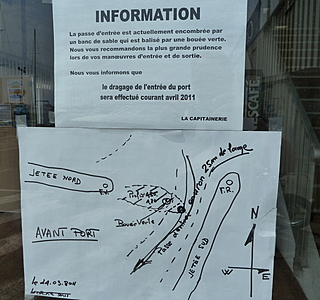 INFORMATION
La passe d'entrée est actuellement encombrée par
un banc de sable qui est balisé par une bouée verte.
Nous vous recommandons la plus grande prudence
lors de vos manœuvres d'entrée et de sortie.
Nous vous informons que
le dragage de l'entrée du port
sera effectué courant avril 2011
LA CAPITAINERIE
JETEE NORD
Bouée Verte
environ 25m de large
Passe d'entrée
JETEE SUD
AVANT PORT
N
W
E